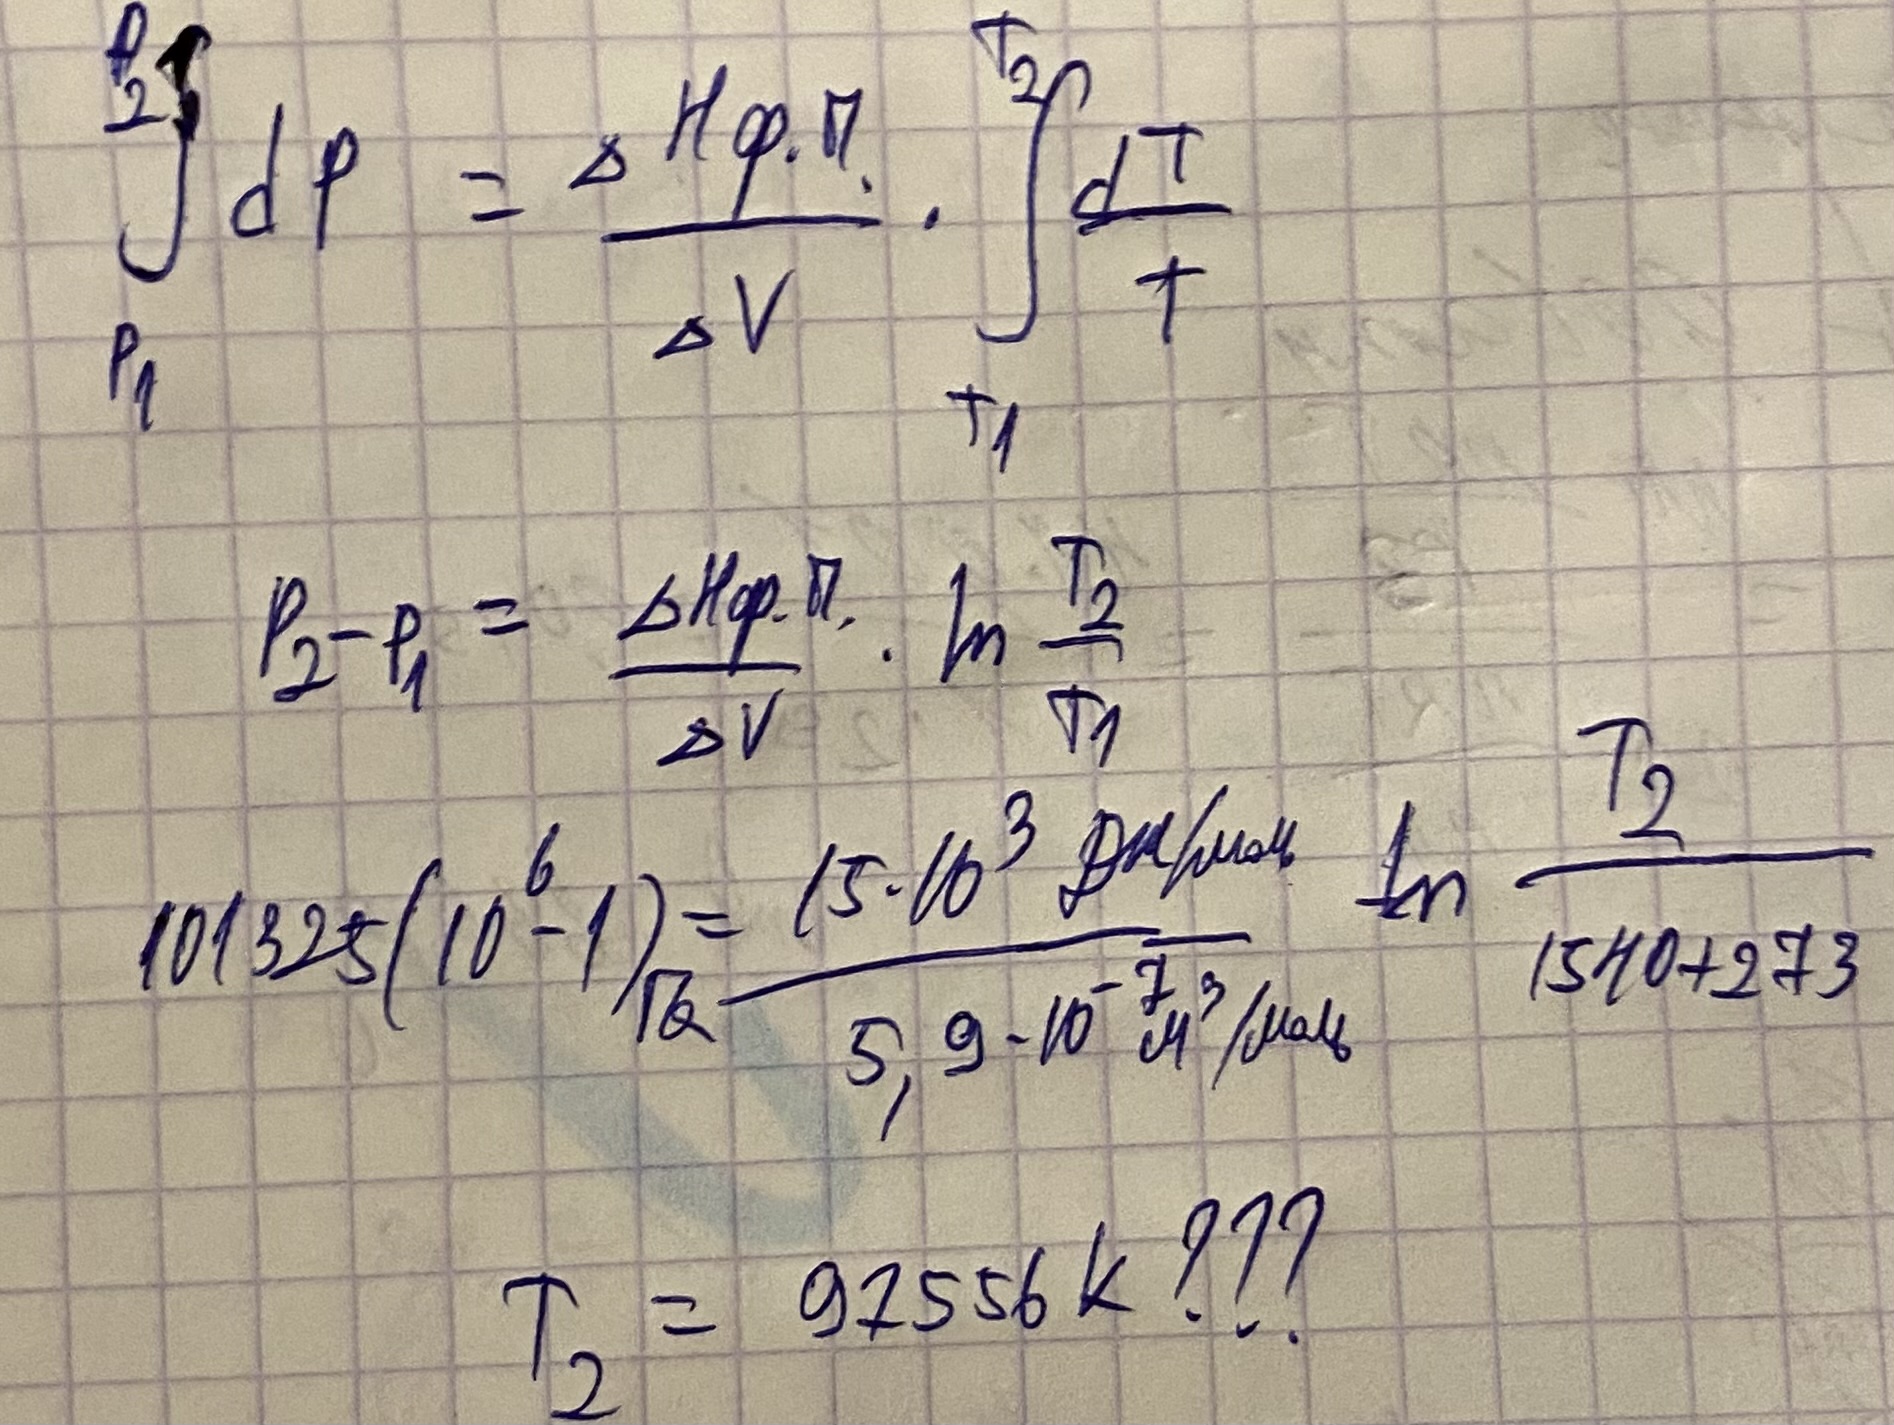 ∫_{P₁}^{P₂} dP = ΔHф.п. / ΔV · ∫_{T₁}^{T₂} dT / T
P₂ - P₁ = ΔHф.п. / ΔV · ln T₂ / T₁
101325(10⁶ - 1) Па = 15·10³ Дж/моль / 5,9·10⁻⁷ м³/моль ln T₂ / 1540+273
T₂ = 97556 K ???